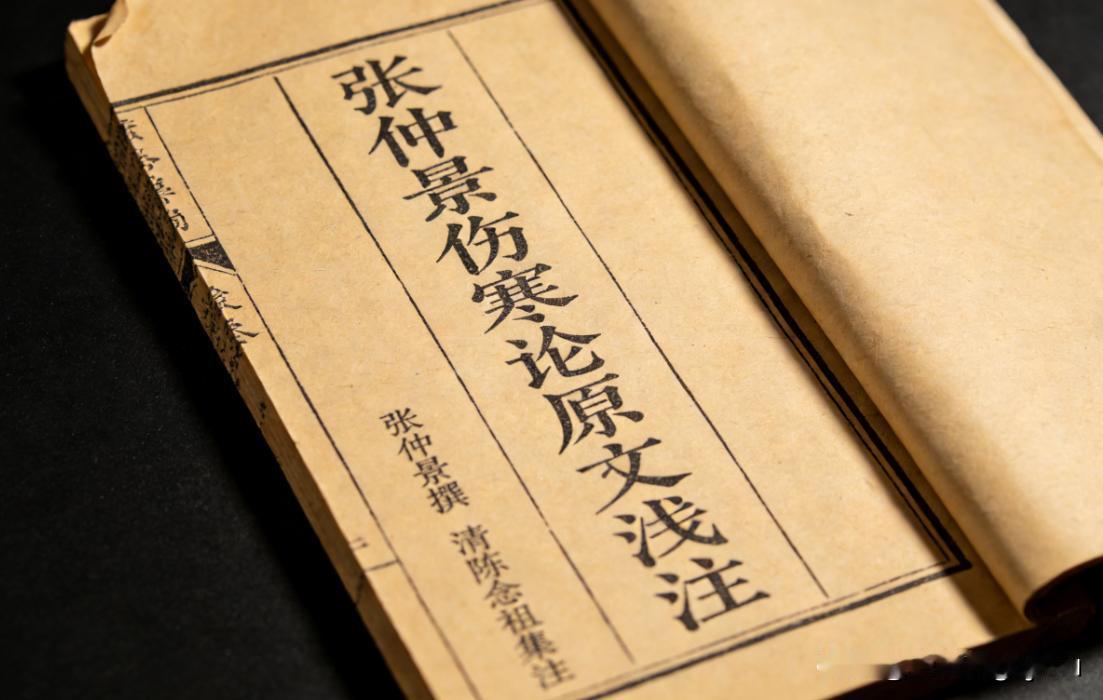 张仲景伤寒论原文浅注
张仲景撰 清陈念祖集注